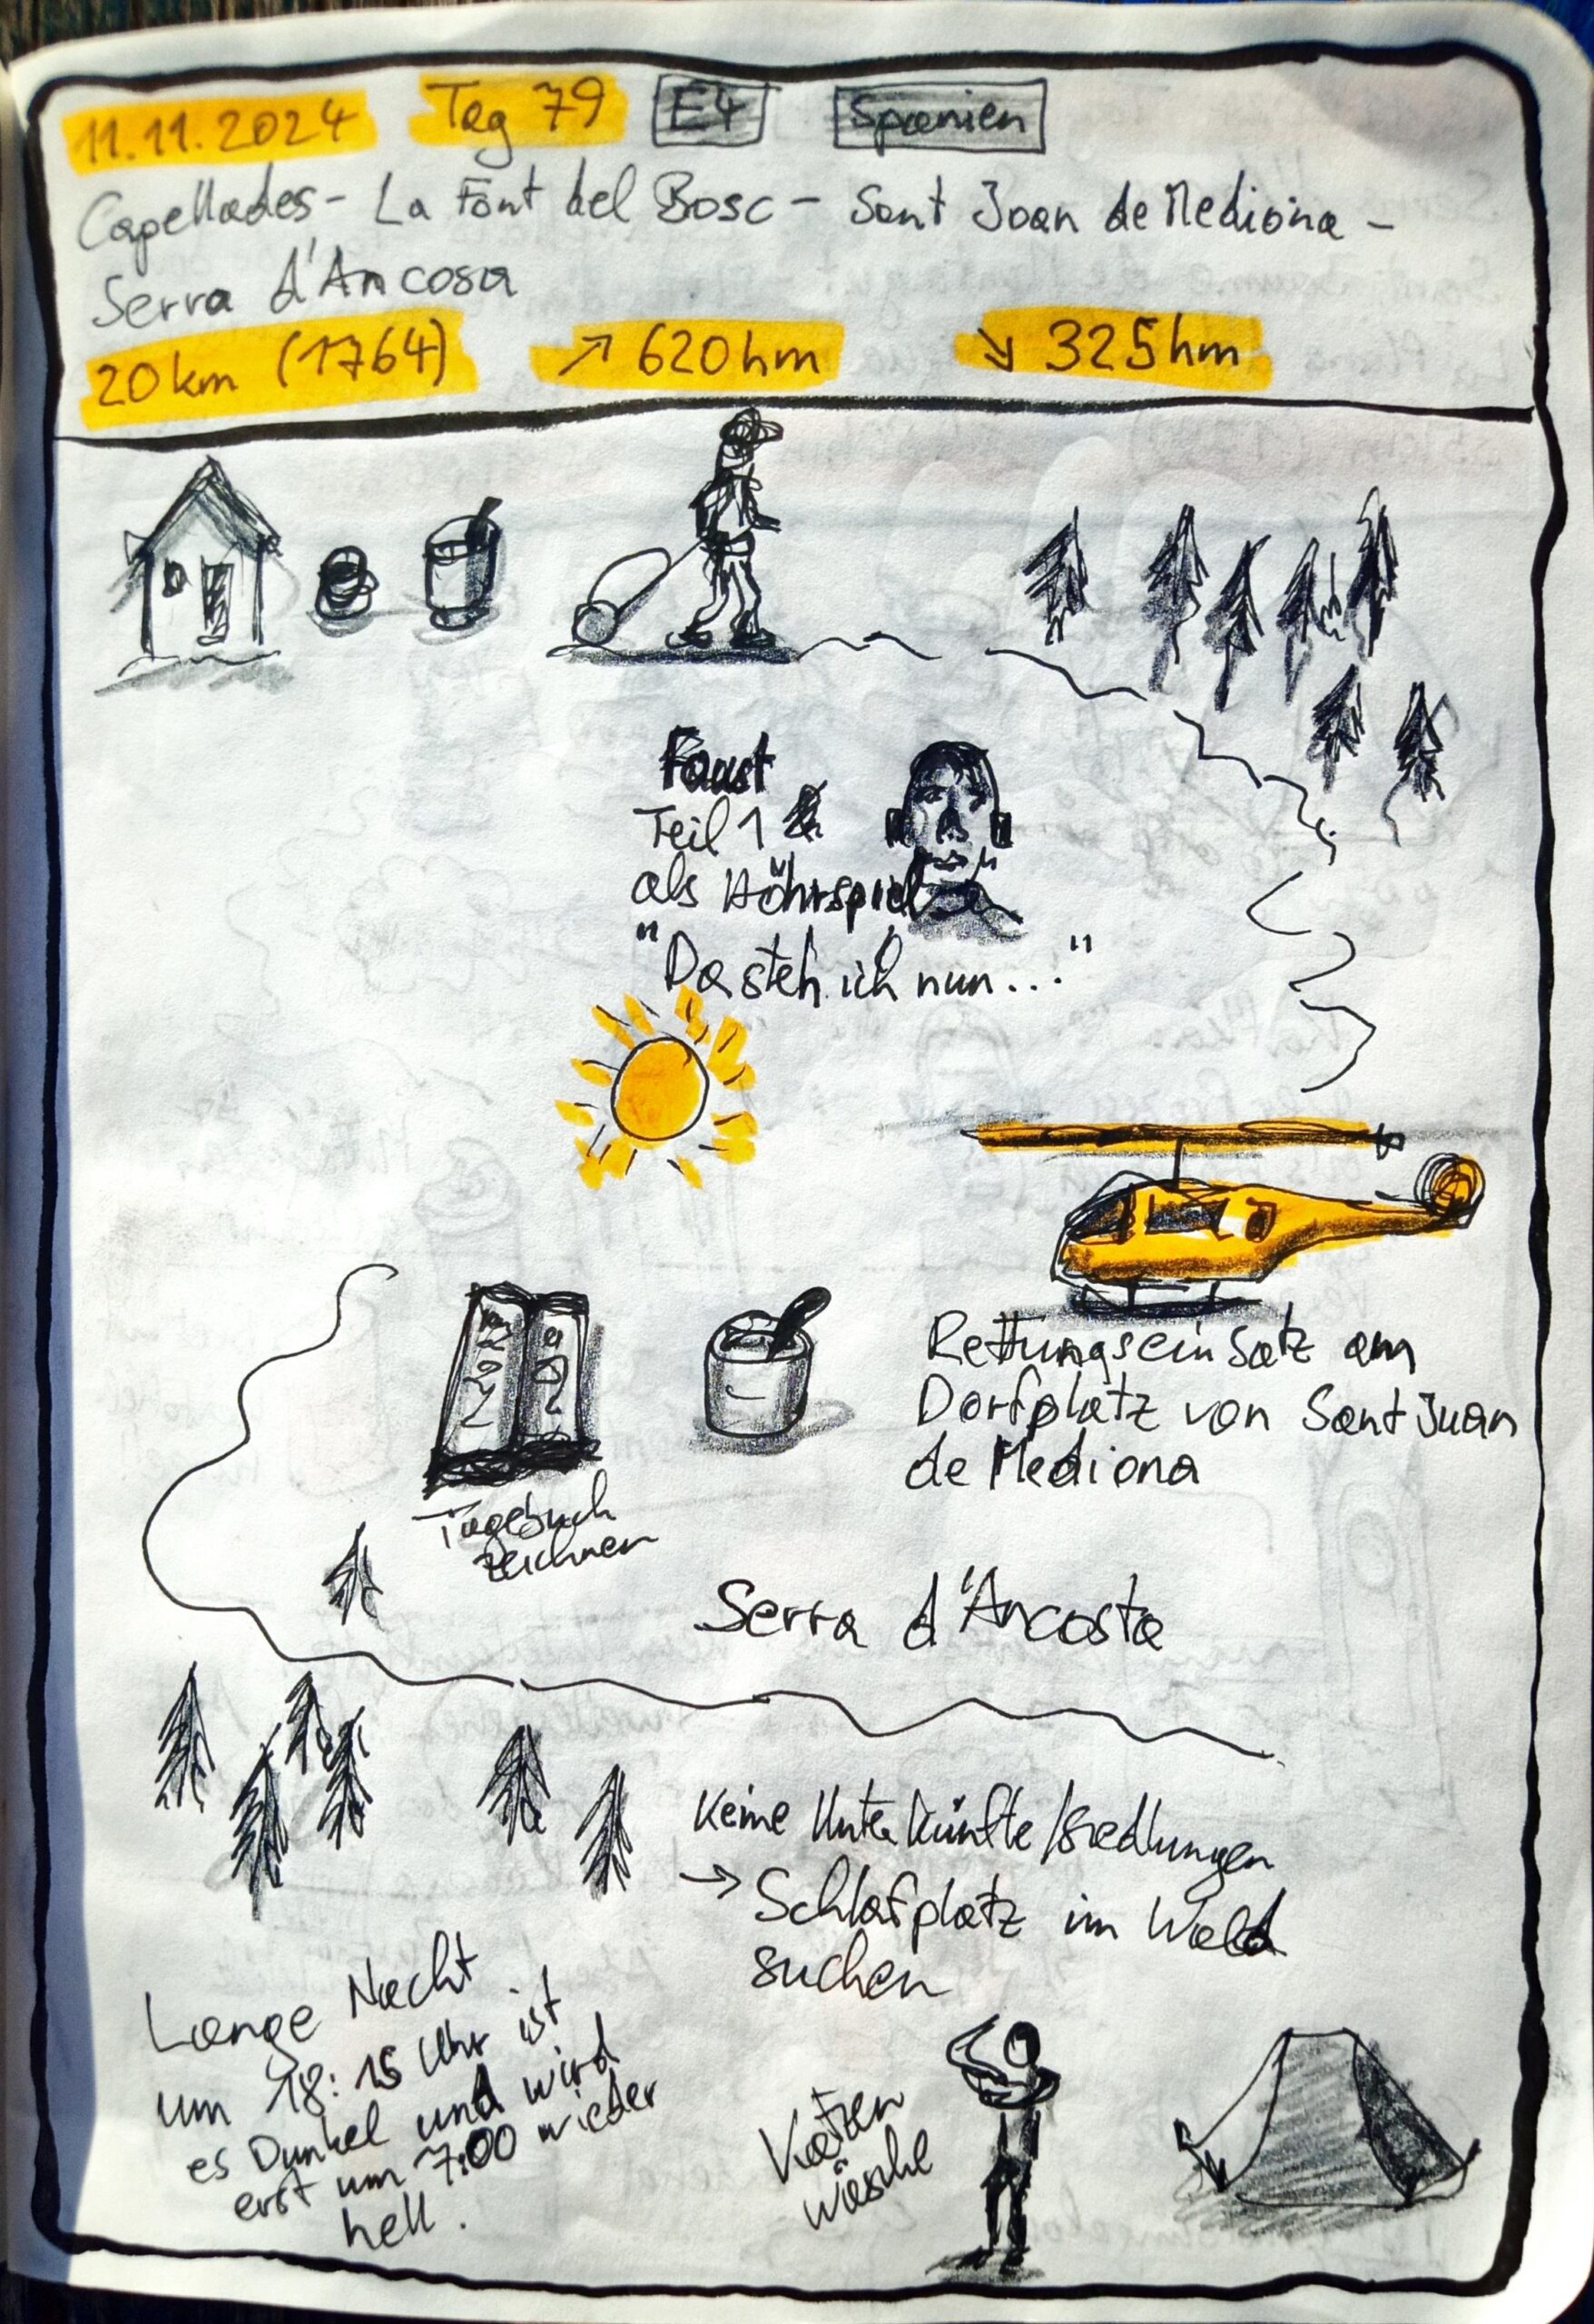 11.11.2024 Tag 79 E4 Spanien
Capellades - La Font del Bosc - Sant Joan de Mediona -
Serra d'Ancosa
20km (1764) ↗ 620hm ↘ 325hm
Faust
Teil 1
als Höhrspiel
"Da steh ich nun..."
Rettungseinsatz am
Dorfplatz von Sant Juan
de Mediona
Tagebuch
zeichnen
Serra d'Ancosta
Keine Unterkünfte/Siedlungen
→ Schlafplatz im Wald
suchen
Lange Nacht
um 18:15 Uhr ist
es Dunkel und wird
erst um 7:00 wieder
hell.
Katzen
wäsche